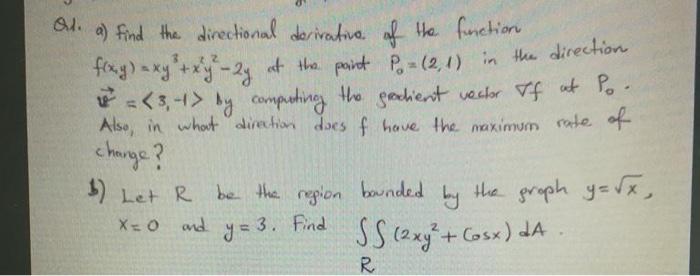 Q1. a) Find the directional derivative of the function
f(x,y) = xy³ + x²y² - 2y at the point P₀ = (2,1) in the direction
v⃗ = <3,-1> by computing the gradient vector ∇f at P₀.
Also, in what direction does f have the maximum rate of
change?
b) Let R be the region bounded by the graph y=√x,
x=0 and y=3. Find ∫∫ (2xy² + Cosx) dA.
R